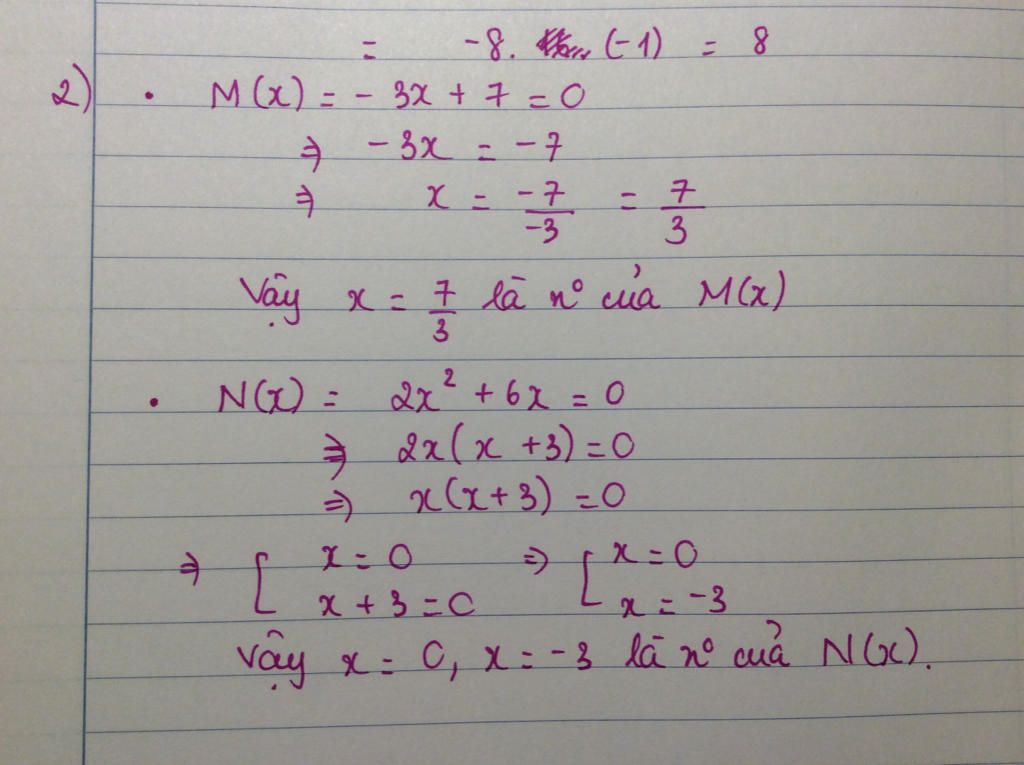 = -8. (-1) = 8
2) • M(x) = - 3x + 7 = 0
⇒ - 3x = - 7
⇒ x = -7/-3 = 7/3
Vậy x = 7/3 là n° của M(x)
• N(x) = 2x² + 6x = 0
⇒ 2x(x + 3) = 0
⇒ x(x + 3) = 0
⇒ [ x = 0 ⇒ [ x = 0
x + 3 = 0 x = -3
Vậy x = 0, x = -3 là n° của N(x).